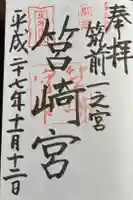 奉拝
筑前一之宮
筥崎宮
平成二十七年十一月十二日